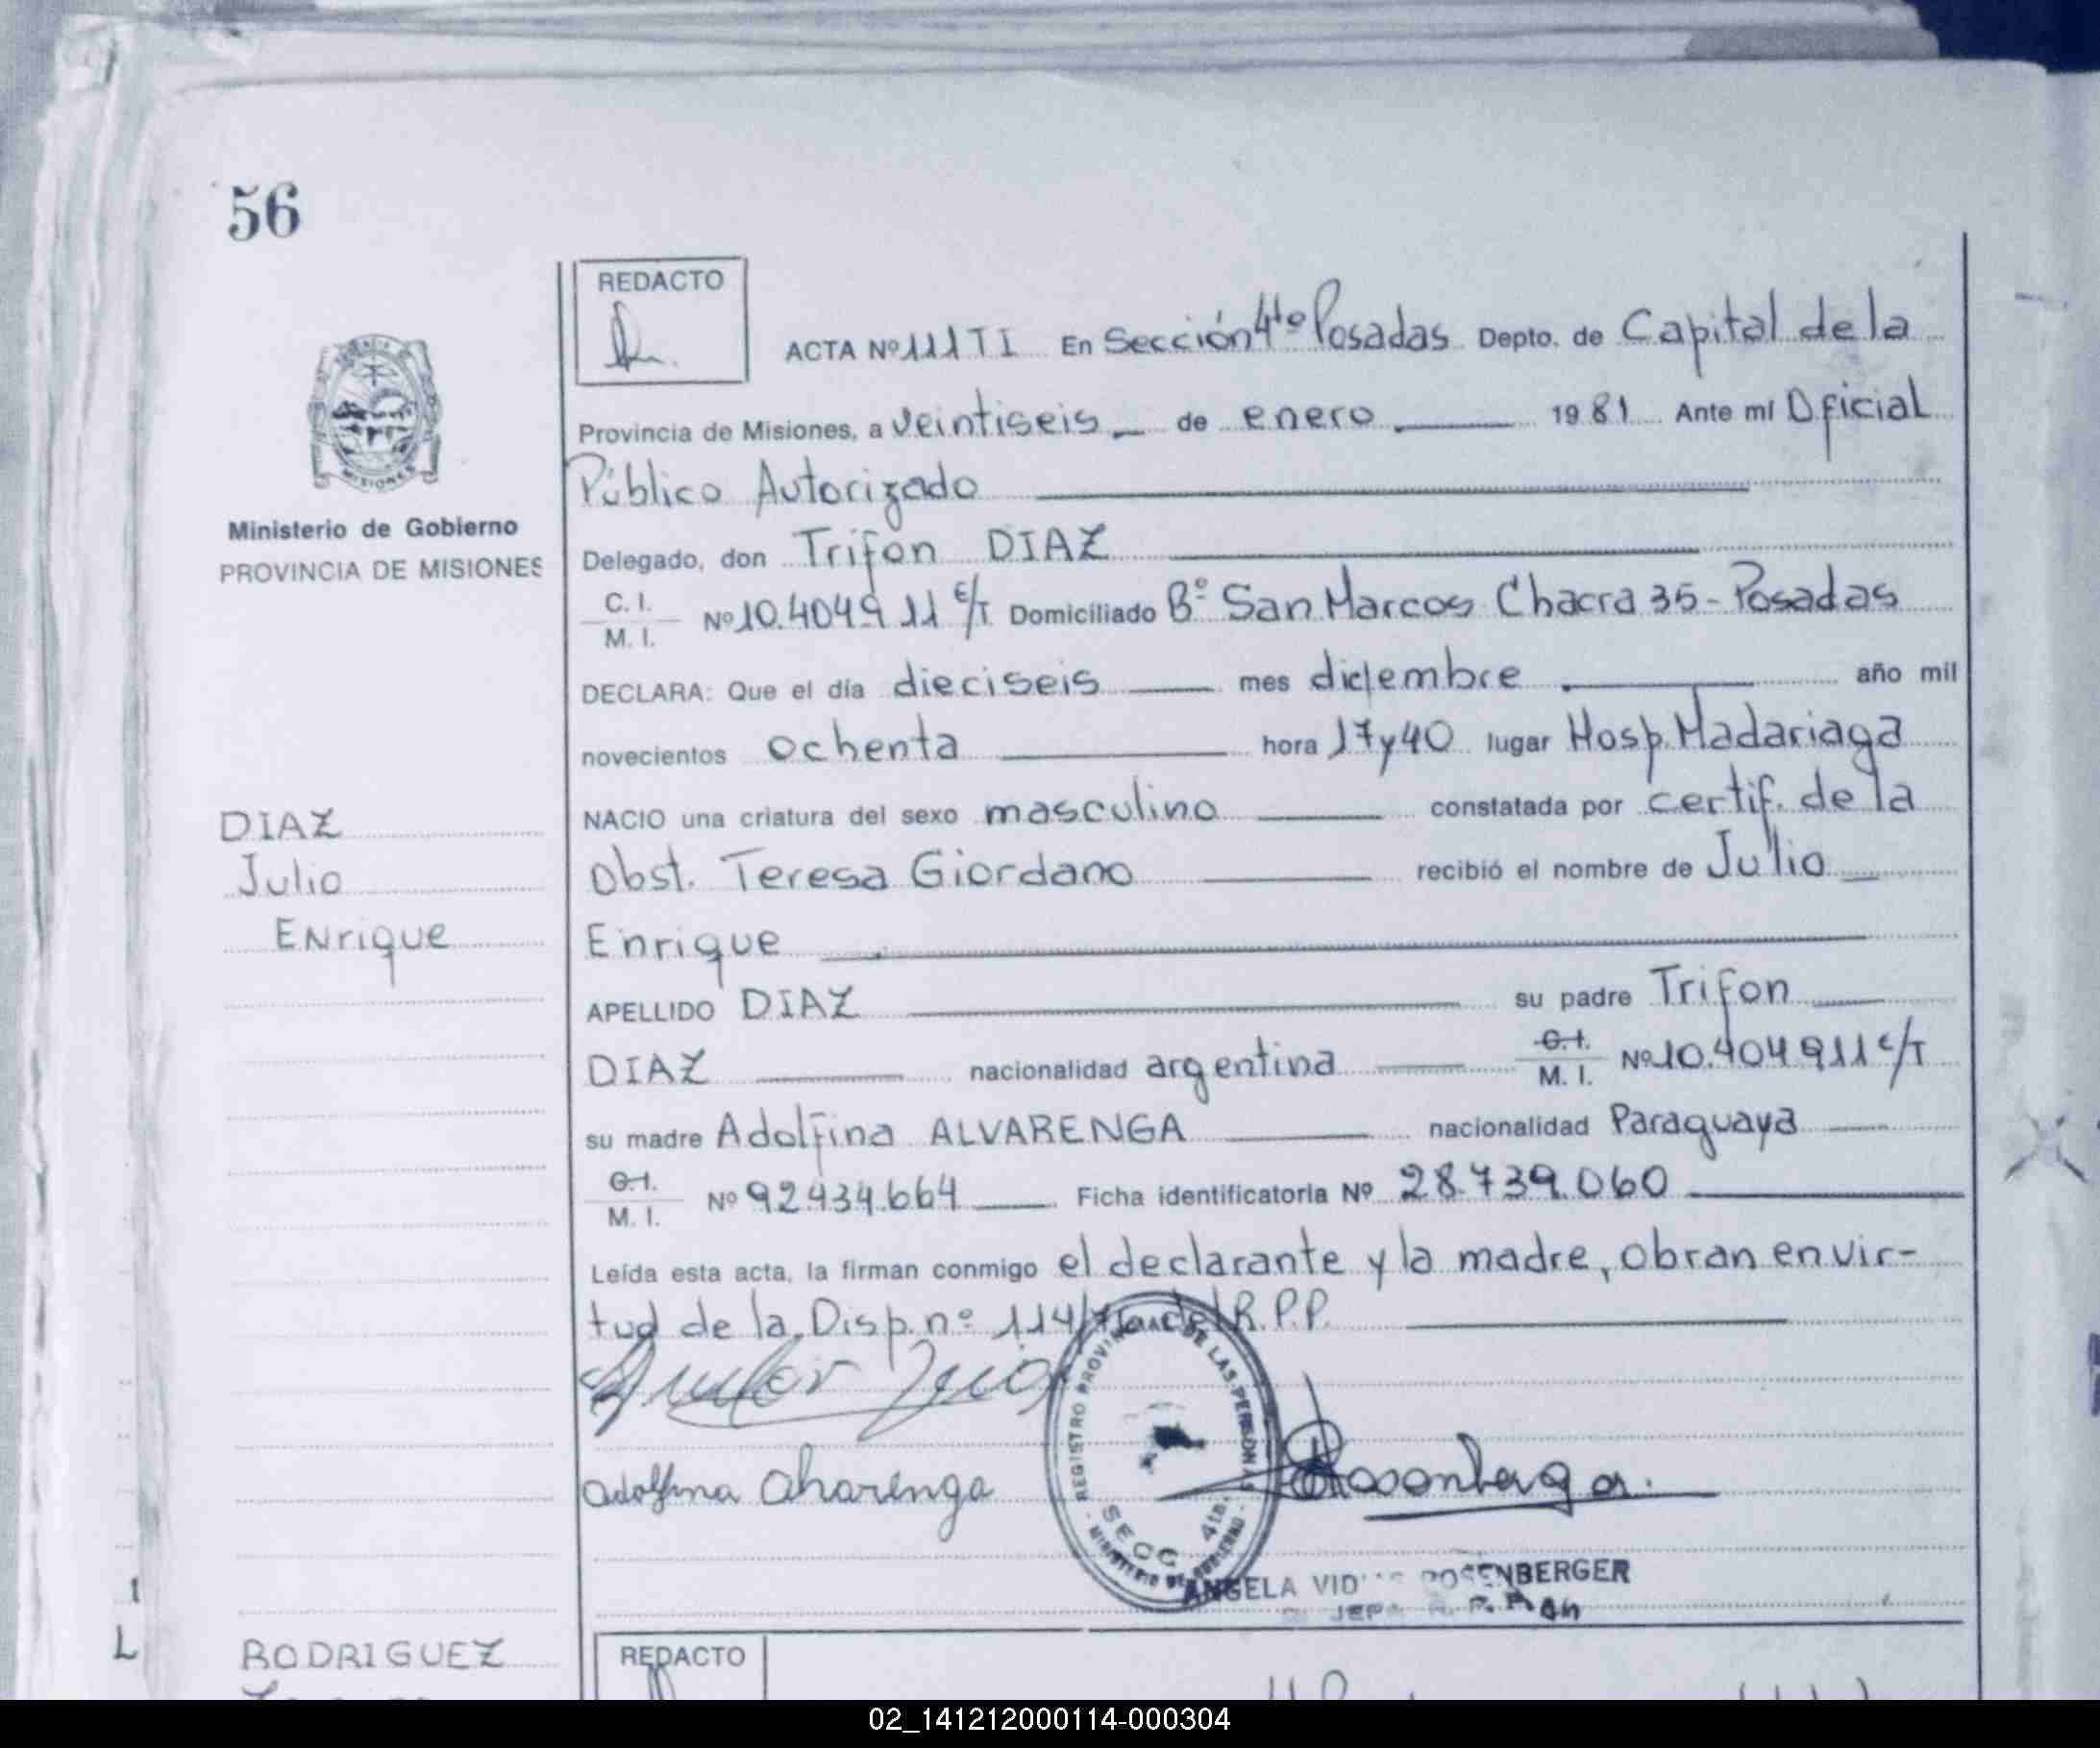 56
REDACTO
ACTA Nº 111 T I En Sección 4ta Posadas Depto. de Capital de la
Provincia de Misiones, a veintiseis de enero 1981 Ante mí Oficial
Público Autorizado
Ministerio de Gobierno
PROVINCIA DE MISIONES
Delegado, don Trifon DIAZ
C. I.
M. I. Nº 10.404911 C/T Domiciliado Bº San Marcos Chacra 35 - Posadas
DECLARA: Que el día dieciseis mes diciembre año mil
novecientos ochenta hora 17 y 40 lugar Hosp. Madariaga
NACIO una criatura del sexo masculino constatada por certif. de la
Obst. Teresa Giordano recibió el nombre de Julio
Enrique
DIAZ
Julio
Enrique
APELLIDO DIAZ su padre Trifon
DIAZ nacionalidad argentina C.I. M. I. Nº 10.404911 C/T
su madre Adolfina ALVARENGA nacionalidad Paraguaya
C.I.
M. I. Nº 92.434.664 Ficha identificatoria Nº 28.739.060
Leída esta acta, la firman conmigo el declarante y la madre, obran en vir-
tud de la Disp. nº 114 del R.P.P.
REGISTRO PROVINCIAL DE LAS PERSONAS
SECC 4ta.
MINISTERIO DE GOBIERNO
Adolfina Alvarenga
ANGELA ROSENBERGER
RODRIGUEZ
REDACTO
02_141212000114-000304